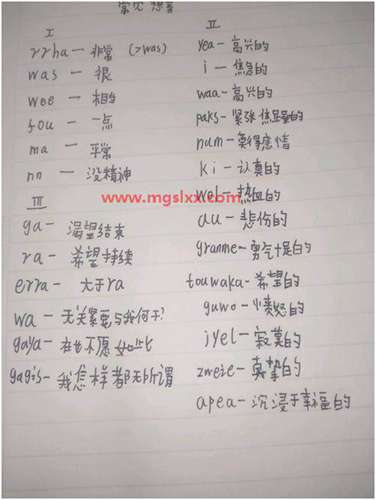 常见 想音
I
rrha — 非常 (>was)
was — 很
wee — 相当
fou — 一点
ma — 平常
nn — 没精神
III
ga — 渴望结束
ra — 希望持续
erra — 大于ra
wa — 无关紧要与我何干?
gaya — 在也不愿如此
gagis — 我怎样都无所谓
II
yea — 高兴的
i — 焦急的
waa — 高兴的
paks — 紧张焦虑的
num — 莫得感情
ki — 认真的
wel — 热血的
au — 悲伤的
granme — 勇气十足的
touwaka — 希望的
guwo — 愤怒的
iyel — 寂寞的
zweie — 真挚的
apea — 沉浸于幸福的
www.mgslxx.com